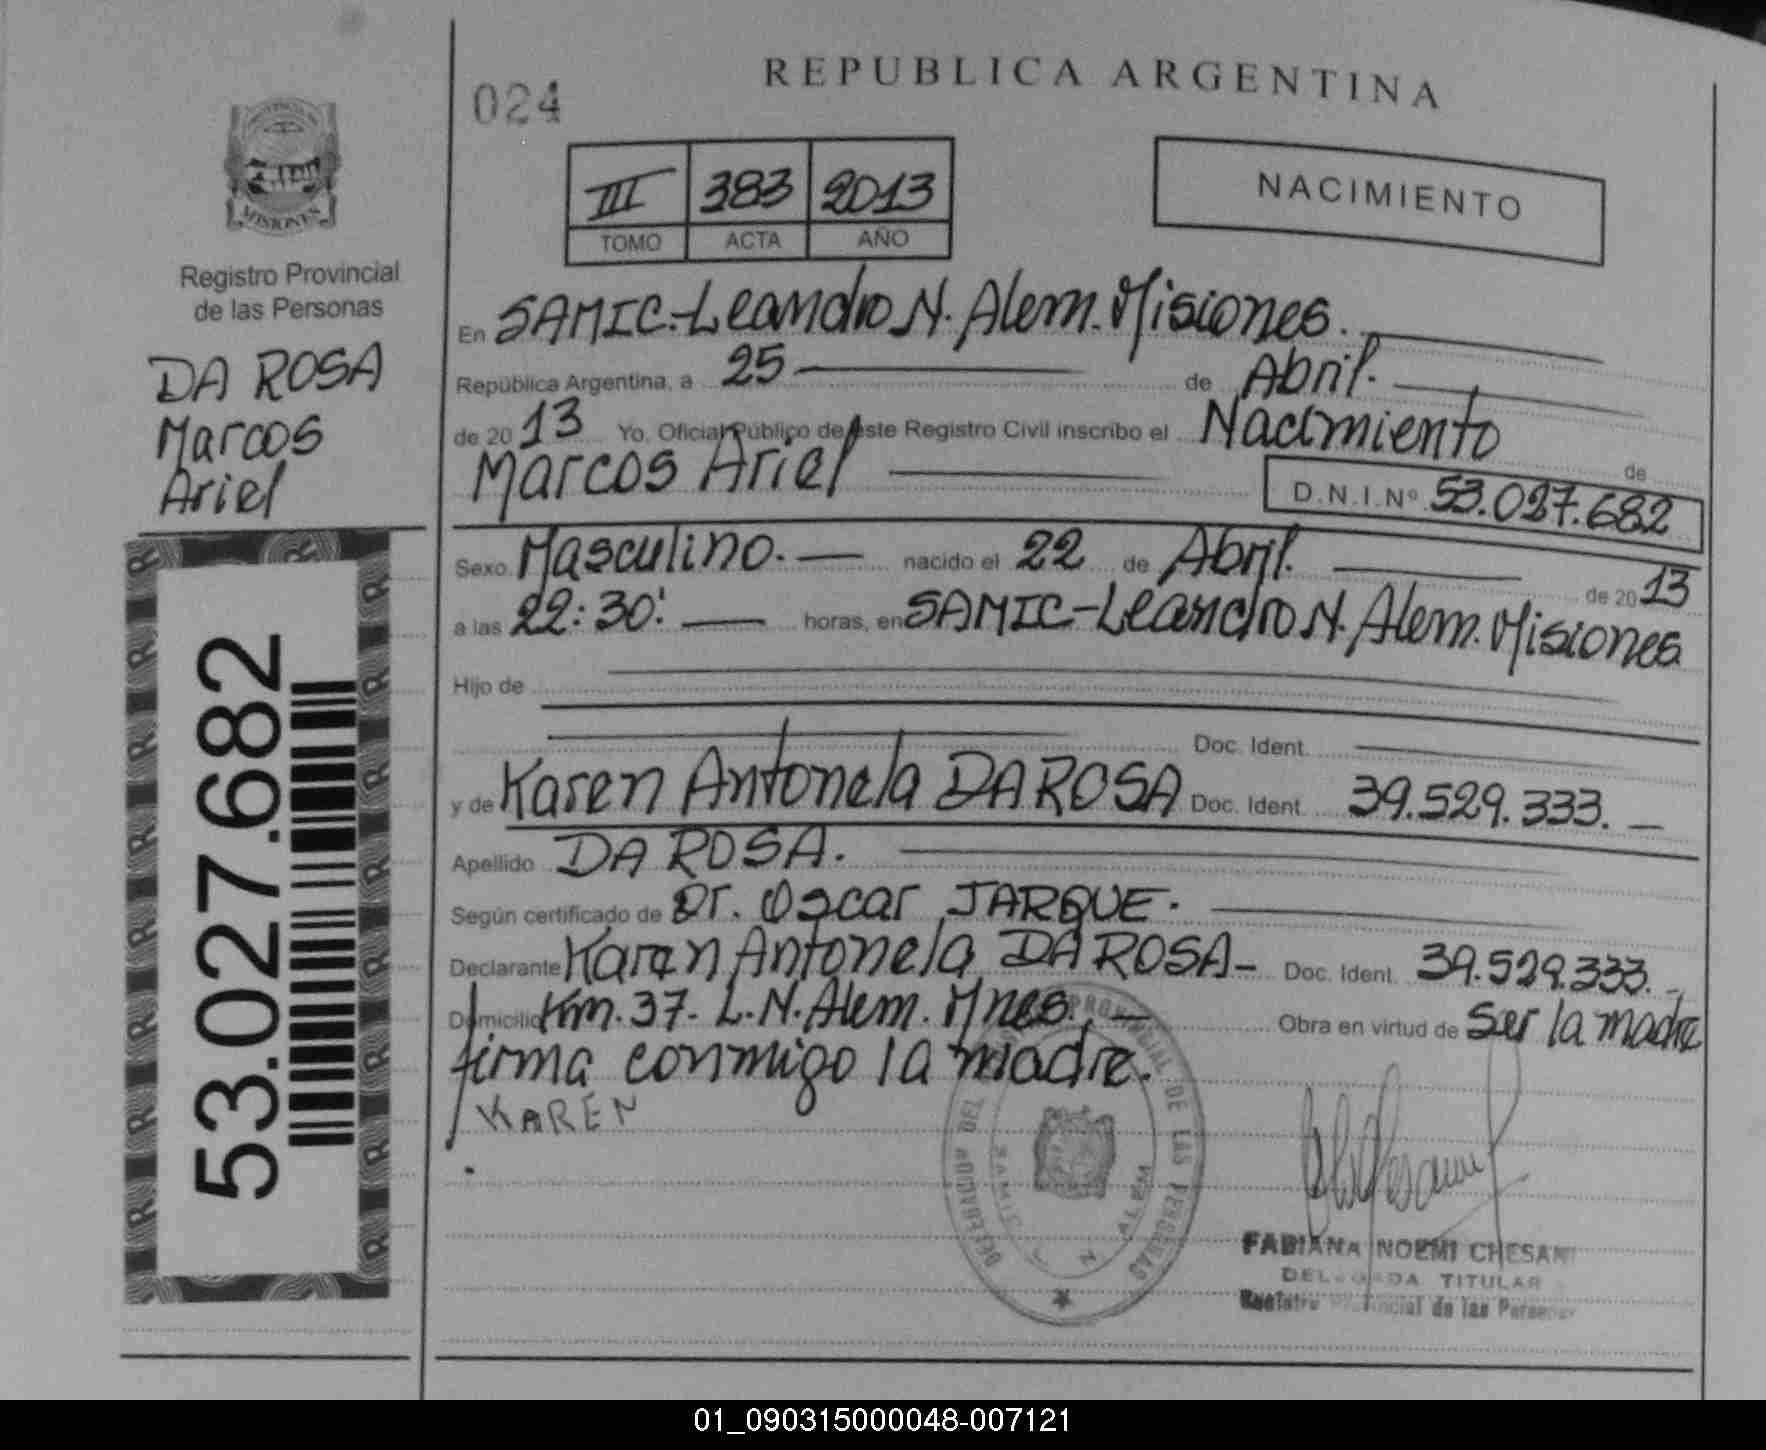 REPUBLICA ARGENTINA
024
III 383 2013
TOMO ACTA AÑO
NACIMIENTO
MISIONES
Registro Provincial
de las Personas
DA ROSA
Marcos
Ariel
53.027.682
En SAMIC.-Leandro N. Alem. Misiones.
República Argentina, a 25 de Abril.
de 2013 Yo, Oficial Público de este Registro Civil inscribo el Nacimiento de
Marcos Ariel D.N.I.Nº 53.027.682
Sexo Masculino. nacido el 22 de Abril. de 2013
a las 22:30: horas, en SAMIC-Leandro N. Alem. Misiones
Hijo de
Doc. Ident.
y de Karen Antonela DA ROSA Doc. Ident. 39.529.333.
Apellido DA ROSA.
Según certificado de Dr. Oscar JARQUE.
Declarante Karen Antonela DA ROSA Doc. Ident. 39.529.333.
Domicilio Km. 37. L.N. Alem. Mnes. Obra en virtud de Ser la madre
firma conmigo la madre.
KAREN
PROVINCIAL DE LAS PERSONAS
DEL
SAMIC L N ALEM
FABIANA NOEMI CHESANI
DELEGADA TITULAR
Registro Provincial de las Personas
01_090315000048-007121